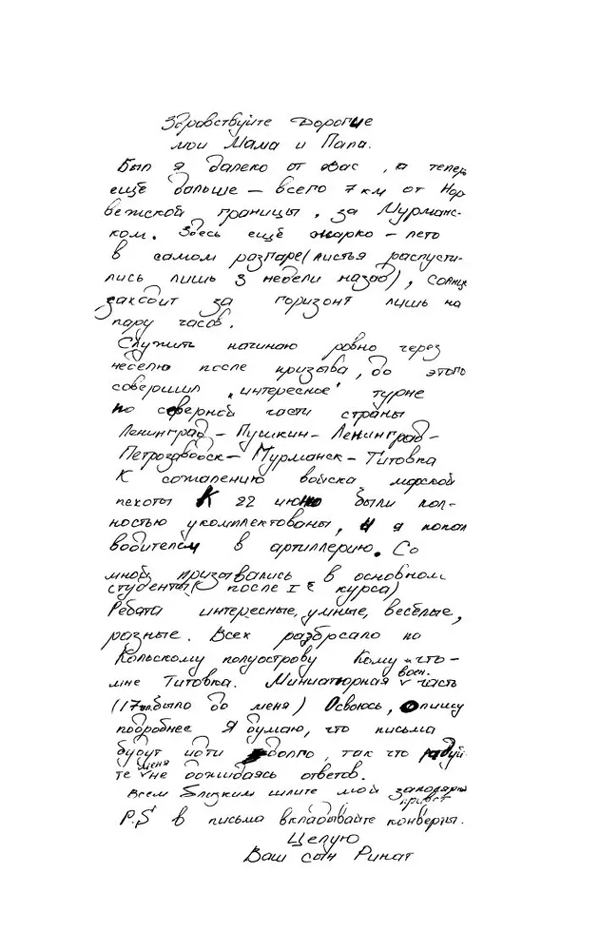 Здравствуйте Дорогие
мои Мама и Папа.
Был я далеко от Вас, а теперь
ещё дальше – всего 7 км от Нор-
вежской границы, за Мурманс-
ком. Здесь ещё жарко – лето
в самом разгаре (листья распусти-
лись лишь 3 недели назад), солнце
заходит за горизонт лишь на
пару часов.
Служить начинаю ровно через
неделю после призыва, до этого
совершил „интересное" турне
по северной части страны
Ленинград – Пушкин – Ленинград –
Петрозаводск – Мурманск – Титовка
К сожалению войска морской
пехоты к 22 июню были пол-
ностью укомплектованы, и я попал
водителем в артиллерию. Со
мной призывались в основном
студенты (после I г. курса)
Ребята интересные, умные, весёлые,
разные. Всех разбросало по
Кольскому полуострову Кому что –
мне Титовка. Миниатюрная воен. часть
(17 было до меня) Освоюсь, опишу
подробнее Я думаю, что письма
будут идти долго, так что радуй-
те меня не дожидаясь ответов.
Всем близким шлите мой заполярный
привет
P.S в письма вкладывайте конверты.
Целую
Ваш сын Ринат